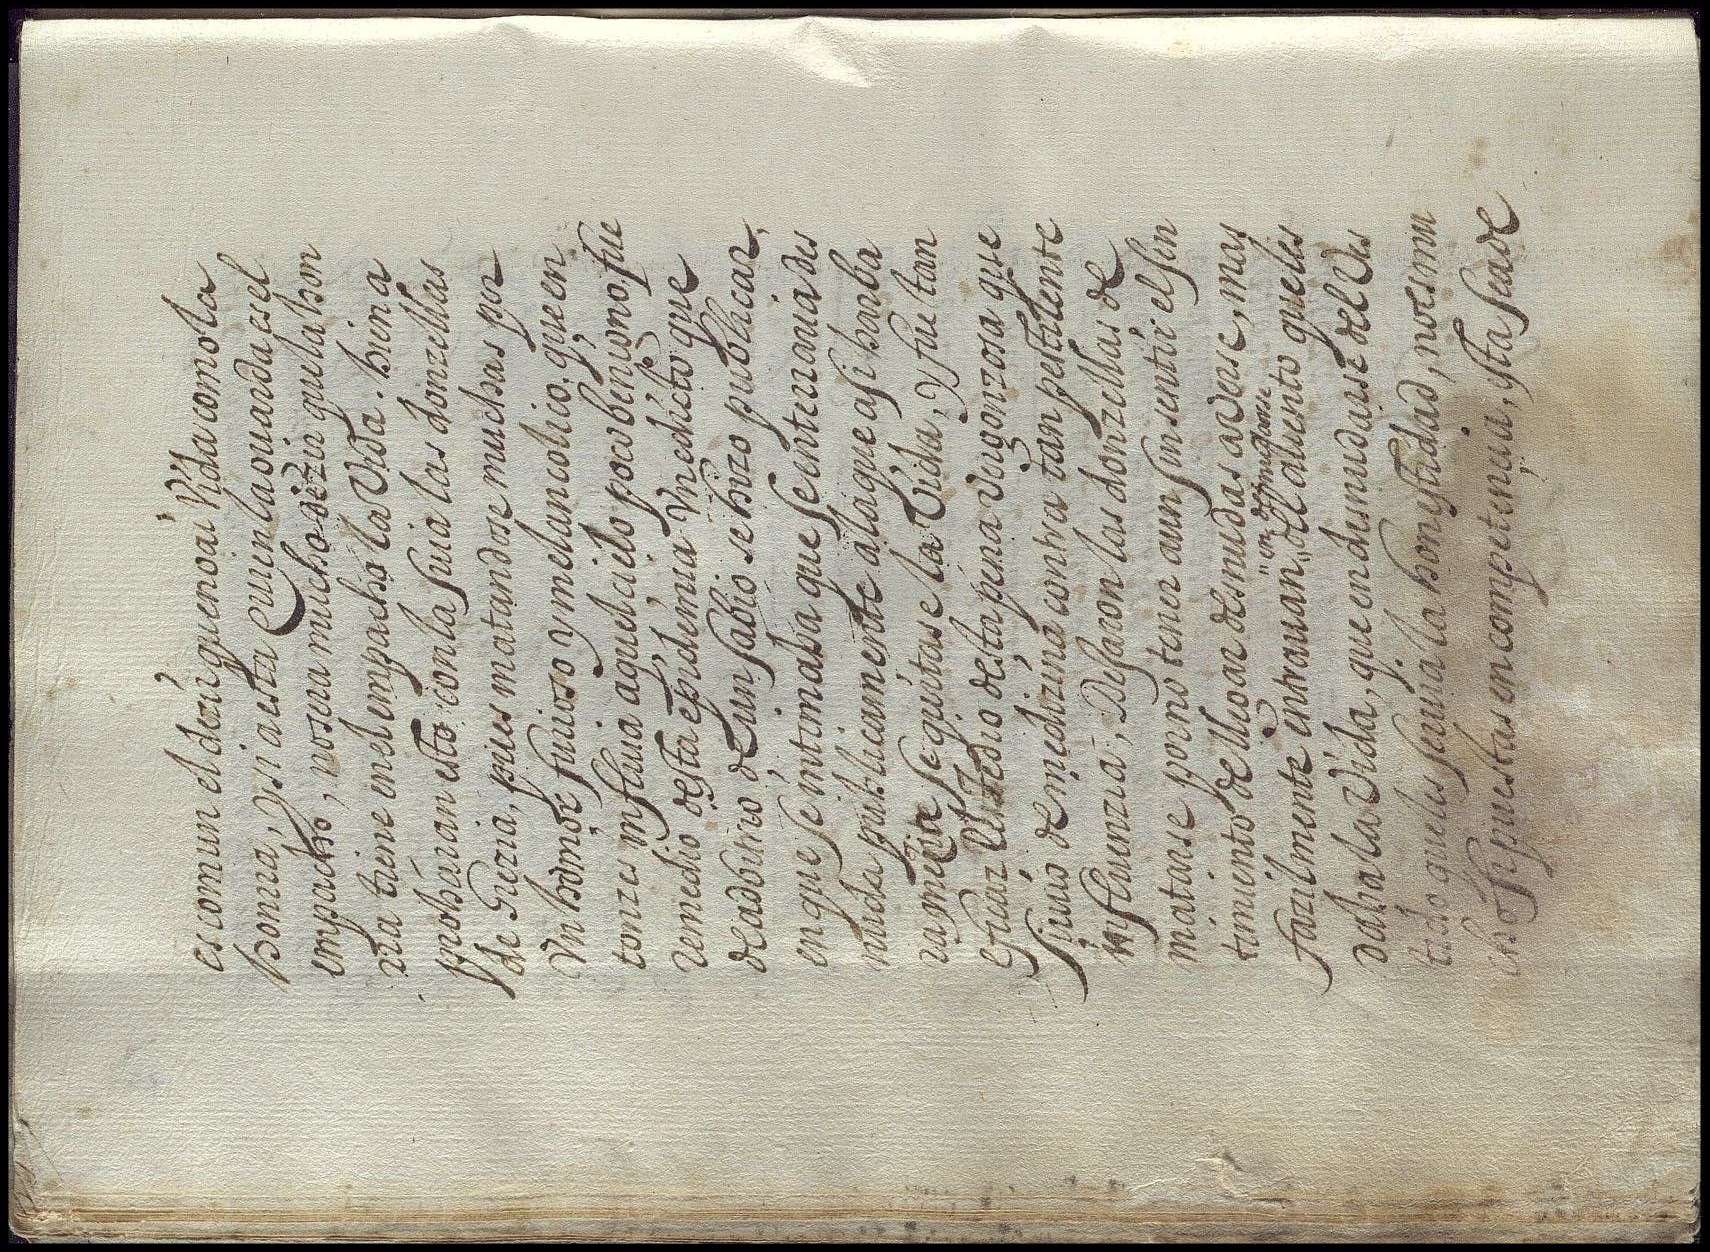 es comun el dezir que no ai Vida como la
honra, y si a esta quien la guarda es el
empacho, no sera mucho dezir que la hon
rra tiene en el empacho la Vida. bien a
probarian esto con la suia las donzellas
de Grezia, pues matandose muchas por
Vn homor furioso y melancolico, que en
tonzes influia aquel cielo poco benigno, fue
remedio desta epidemia Vn edicto que
de adbitrio de un sabio se hizo publicar,
en que se intimaba que se enterraria des
nuda publicamente a la que asi barba
ramente se quitase la Vida, y fue tan
eficaz el medio desta pena vergonzosa que
siruio de medizina contra tan pestilente
influenzia, Dejaron las donzellas de
matarse por no tener aun sin sentir el sen
timiento de llegar desnudas a verse, mas
fazilmente entrauan en Vn lanze del aliento que les
daba la Vida, que en desnudarse del Ves
tido que les seruia la honestidad, no es mu
cho si puestas en competencia, esta sea de